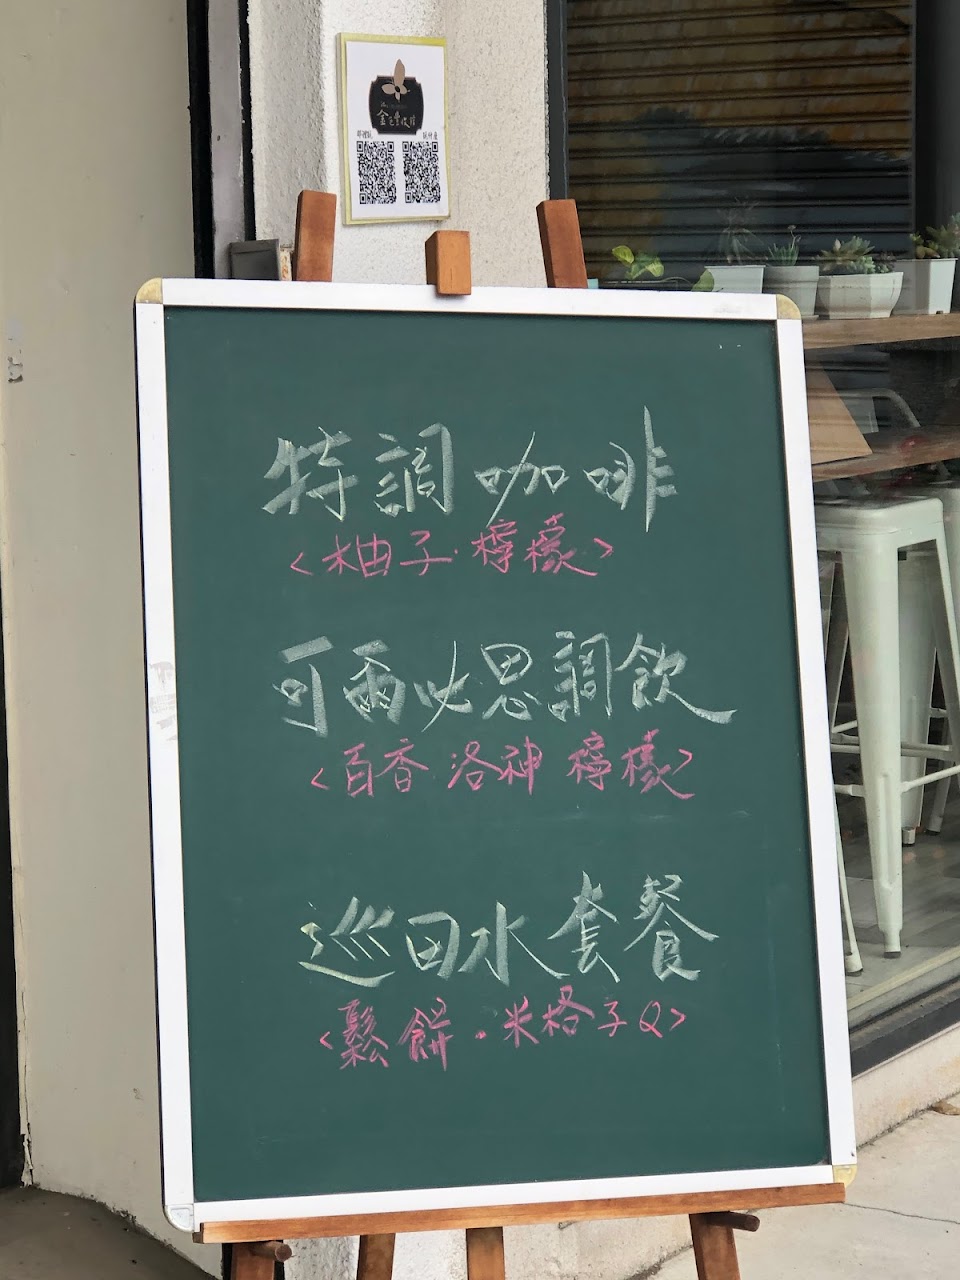 金色豐收館
特調咖啡
<柚子·檸檬>
可爾必思調飲
<百香 洛神 檸檬>
巡田水套餐
<鬆餅·米格子Q>